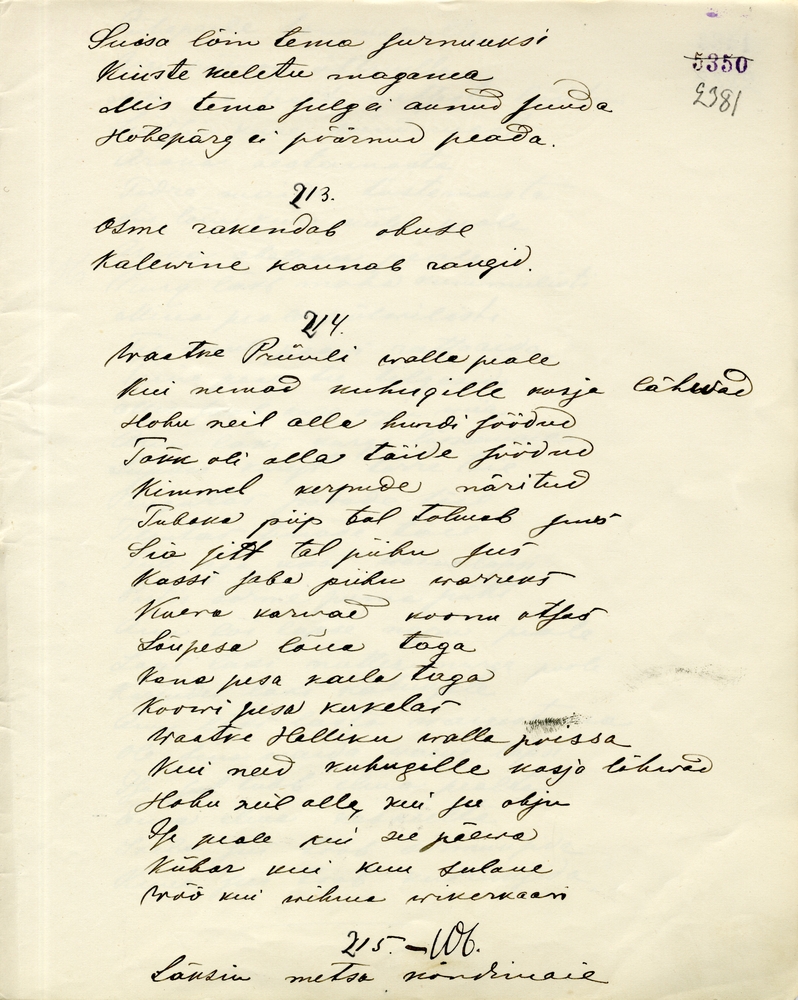 Suisa lõin tema surnuuksi
Kiuste keeletu magama
Mis tema selg ei annud suuda
Hõbepärg ei pöörnud peada.
5350
2381
213.
Osme rakendab obuse
Kalewine kannab rangid.
214.
Waatke Prüüuli walla peale
Kui nemad kuhugille kosja lähwad
Hobu neil alla hundi söödud
Täkk oli alla täide söödud
Kimmel kerpude näritud
Tubaka piip tal tolmab suus
Sia sitt tal piibu sus
Kassi saba piibu warreks
Koera karwad koonu otsas
Sõupesa lõua taga
Kana pesa kaela taga
Koowi pesa kukelas
Waatke Halliku walla poissa
Kui neid kuhugille kosja lähwad
Hobu neil alla, kui see obju
Ise peale kui see päewa
Kübar kui kuu sulane
Wöö kui wihma wikerkaari
215. – 106.
Läksin metsa kõndimaie